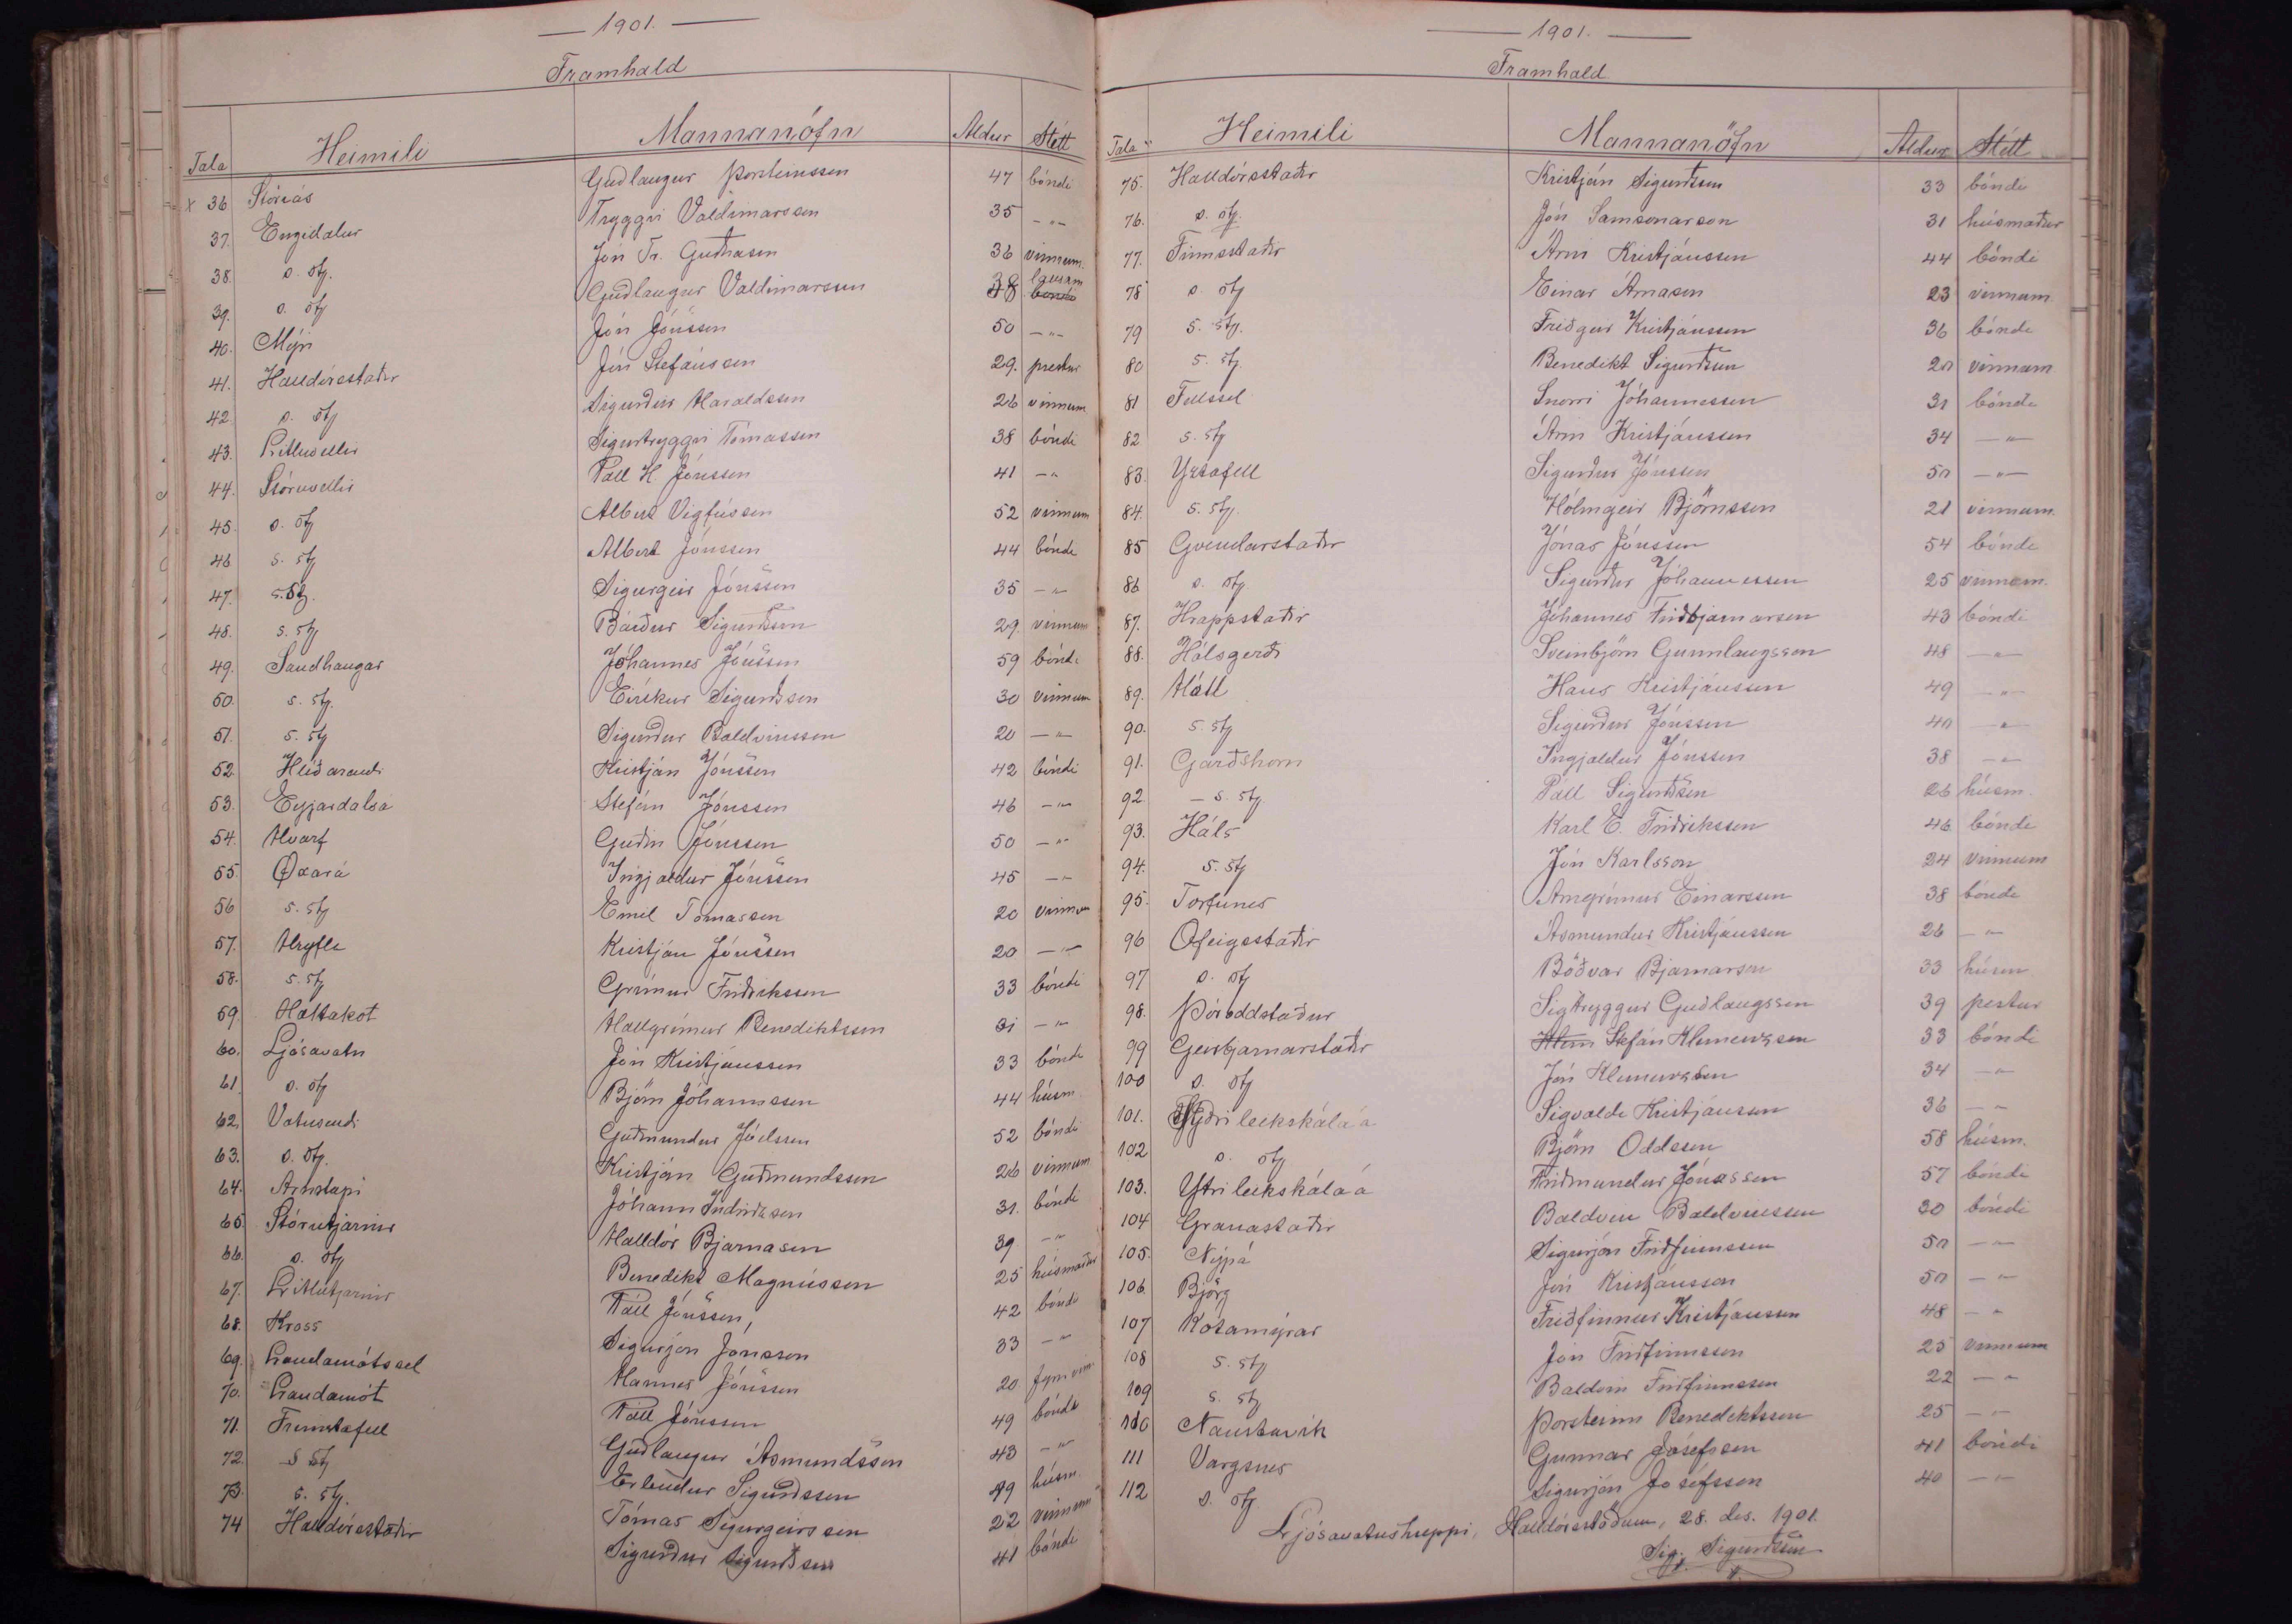 — 1901. —
Framhald
Tala Heimili Mannanöfn Aldur Stétt
x 36. Stóraás Guðlaugur Þorsteinsson 47 bóndi
37. Engidalur Tryggvi Valdimarsson 35 — " —
38. s. stj. Jón Tr. Guðnason 36 vinnum.
39. s. stj Guðlaugur Valdimarsson 38 lausam bóndi
40. Mýri Jón Jónsson 50 — " —
41. Halldórsstaðir Jón Stefánsson 29. prestur
42. s. stj Sigurður Haraldsson 26 vinnum
43. Litluvellir Sigurtryggvi Tómasson 38 bóndi
44. Stóruvellir Páll H. Jónsson 41 — "
45. s. stj Albert Vigfússon 52 vinnum
46 s. stj Albert Jónsson 44 bóndi
47. s. stj. Sigurgeir Jónsson 35 — " —
48. s. stj Bárður Sigurðsson 29. vinnum
49. Sandhaugar Jóhannes Jónsson 59 bóndi
50. s. stj. Eiríkur Sigurðsson 30 vinnum
51. s. stj Sigurður Baldvinsson 20 — " —
52. Hlíðarendi Kristján Jónsson 42 bóndi
53. Eyjardalsá Stefán Jónsson 46 — " —
54. Hvarf Guðni Jónsson 50 — " —
55. Øxará Ingjaldur Jónsson 45 — " —
56 s. stj Emil Tómasson 20 vinnum
57. Hrýfle Kristján Jónsson 20 — " —
58. s. stj Grímur Friðriksson 33 bóndi
59. Holtakot Hallgrímur Benediktsson 31 — " —
60. Ljósavatn Jón Kristjánsson 33 bóndi
61 s. stj Björn Jóhannsson 44 húsm.
62. Vatnsendi Guðmundur Jóelsson 52 bóndi
63. s. stj. Kristján Guðmundsson 26 vinnum
64. Arnstapi Jóhann Indriðason 31. bóndi
65. Stórutjarnir Halldór Bjarnason 39. — " —
66. s. stj Benedikt Magnússon 25 húsmaður
67. Litlutjarnir Páll Jónsson, 42 bóndi
68. Kross Sigurjón Jónsson 33 — " —
69. Landamótssel Hannes Jónsson 20
70. Landamót Páll Jónsson 49 bóndi
71. Fremstafell Guðlaugur Ásmundsson 43 — " —
72. s stj Erlendur Sigurðsson 49 húsm.
73. s. stj. Tómas Sigurgeirsson 22 vinnum
74 Halldórsstaðir Sigurður Sigurðsson 41 bóndi
— 1901. —
Framhald
Tala Heimili Mannanöfn Aldur Stétt
75. Halldórsstaðir Kristján Sigurðsson 33 bóndi
76. s. stj. Jón Samsonarson 31 húsmaður
77. Finnsstaðir Árni Kristjánsson 44 bóndi
78 s. stj Einar Árnason 23 vinnum
79 s. stj. Friðgeir Kristjánsson 36 bóndi
80 s. stj. Benedikt Sigurðsson 20 vinnum
81 Fellssel Snorri Jóhannesson 31 bóndi
82 s. stj Árni Kristjánsson 34 — " —
83. Yztafell Sigurður Jónsson 50 — " —
84. s. stj. Hólmgeir Björnsson 21 vinnum.
85 Gvendarstaðir Jónas Jónsson 54 bóndi
86 s. stj Sigurður Jóhannesson 25 vinnum.
87. Hrappstaðir Jóhannes Friðbjarnarson 43 bóndi
88. Hálsgerði Sveinbjörn Gunnlaugsson 48 — " —
89. Hóll Hans Kristjánsson 49 — " —
90. s. stj Sigurður Jónsson 40 — " —
91. Garðshorn Ingjaldur Jónsson 38 — " —
92. — s. stj Páll Sigurðsson 26 húsm.
93. Háls Karl E. Friðriksson 46 bóndi
94. s. stj Jón Karlsson 24 vinnum
95. Torfunes Arngrímur Einarsson 38 bóndi
96 Ófeigsstaðir Ásmundur Kristjánsson 26 — " —
97 s. stj Böðvar Bjarnarson 33 húsm
98. Þóroddstaður Sigtryggur Guðlaugsson 39 prestur
99 Geirbjarnarstaðir Klem Stefán Klemenzson 33 bóndi
100 s. stj Jón Klemenzson 34 — " —
101. Syðri leikskálaá Sigvaldi Kristjánsson 36 — " —
102 s. stj Björn Oddsson 58 húsm.
103. Ytri leikskálaá Friðmundur Jónasson 57 bóndi
104 Granastaðir Baldvin Baldvinsson 30 bóndi
105. Nýpá Sigurjón Friðfinnsson 50 — " —
106. Björg Jón Kristjánsson 50 — " —
107 Kotamýrar Friðfinnur Kristjánsson 48 — " —
108 s. stj Jón Friðfinnsson 25 vinnum
109 s. stj Baldvin Friðfinnsson 22 — " —
110 Naustavík Þorsteinn Benediktsson 25 — " —
111 Vargsnes Gunnar Jósefsson 41 bóndi
112 s. stj. Sigurjón Jósefsson 40 — " —
Ljósavatnshreppi, Halldórsstöðum, 28. des. 1901.
Sig. Sigurðsson